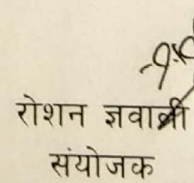 रोशन ज्ञवाली
संयोजक